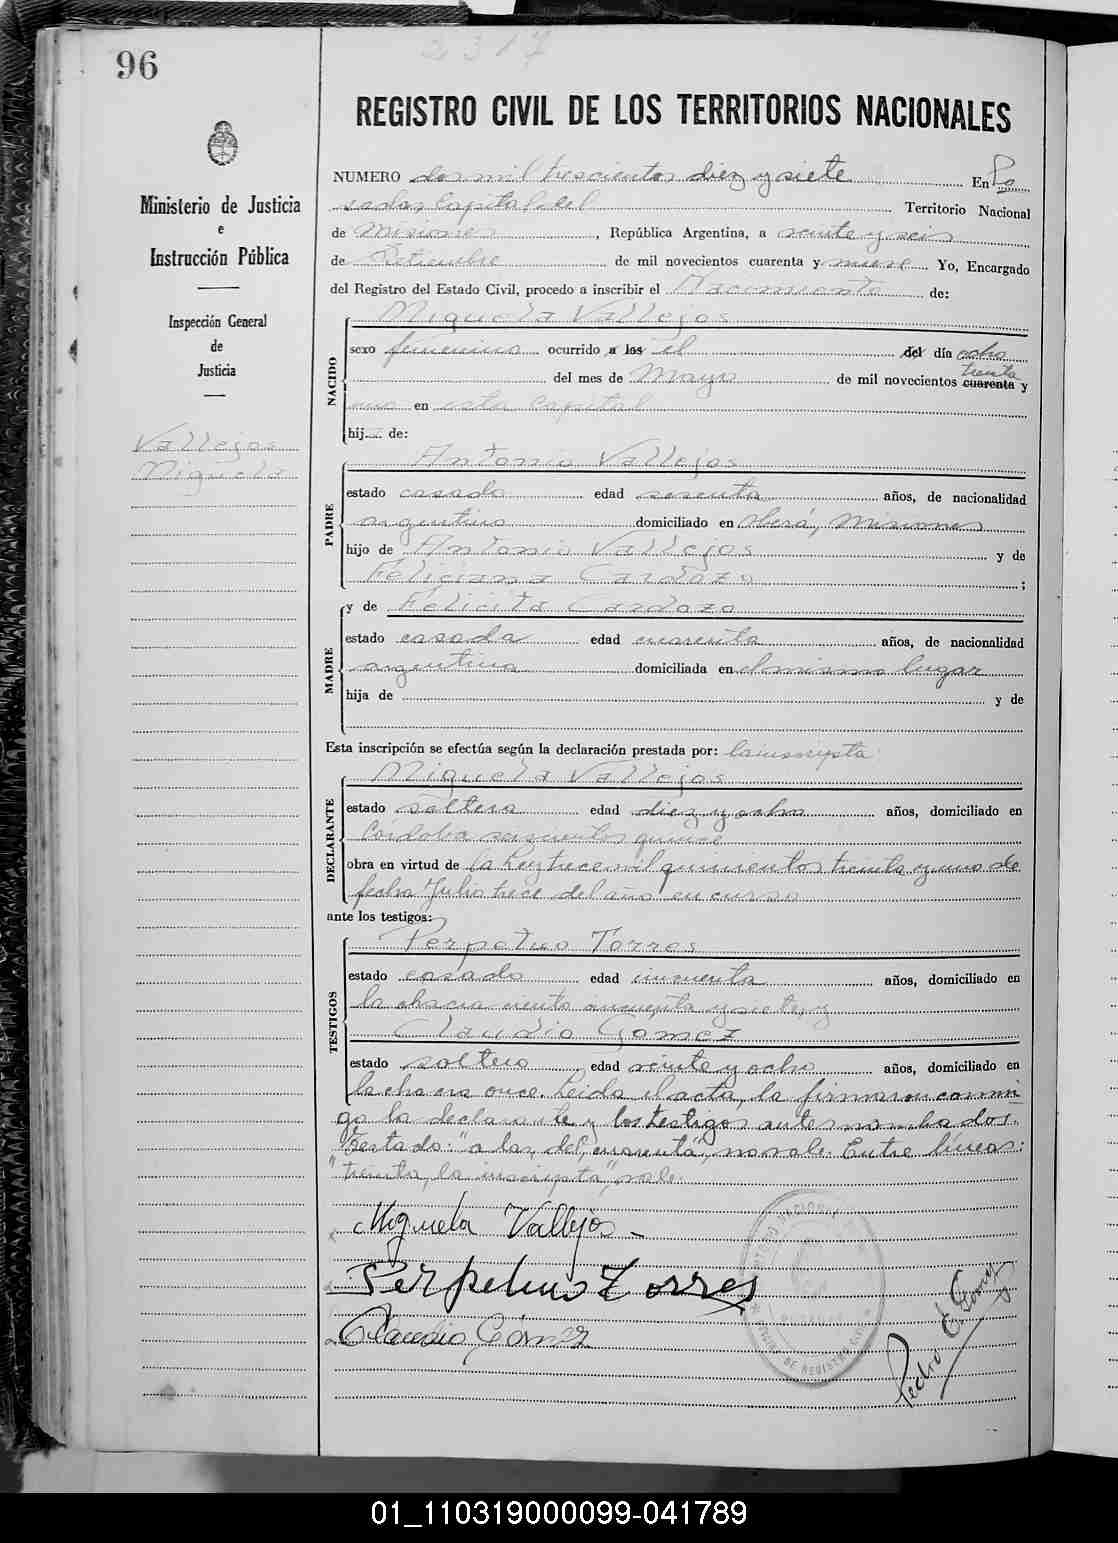 96
2317
REGISTRO CIVIL DE LOS TERRITORIOS NACIONALES
Ministerio de Justicia
e
Instrucción Pública
Inspección General
de
Justicia
Vallejos
Miguela
NUMERO dos mil trescientos diez y siete En Po
sadas Capital del Territorio Nacional
de Misiones, República Argentina, a veinte y seis
de Setiembre de mil novecientos cuarenta y nueve Yo, Encargado
del Registro del Estado Civil, procedo a inscribir el Nacimiento de:
NACIDO
Miguela Vallejos
sexo femenino ocurrido a las el del día ocho
treinta
del mes de Mayo de mil novecientos cuarenta y
uno en esta capital
hij de:
PADRE
Antonio Vallejos
estado casado edad sesenta años, de nacionalidad
argentino domiciliado en Oberá, Misiones
hijo de Antonio Vallejos y de
Feliciana Cardozo;
MADRE
y de Felicita Cardozo
estado casada edad cuarenta años, de nacionalidad
argentina domiciliada en el mismo lugar
hija de y de
Esta inscripción se efectúa según la declaración prestada por: la inscripta
DECLARANTE
Miguela Vallejos
estado soltera edad diez y ocho años, domiciliado en
Córdoba seiscientos quince
obra en virtud de la Ley trece mil quinientos treinta y uno de
fecha Julio trece del año en curso
ante los testigos:
TESTIGOS
Perpetuo Torres
estado casado edad cincuenta años, domiciliado en
la chacra ciento cincuenta y siete, y
Claudio Gomez
estado soltero edad veinte y ocho años, domiciliado en
la chacra once. Leida el acta, la firmaron conmi
go la declarante y los testigos antes nombrados.
Testado: "a las, del, cuarenta", no vale. Entre líneas:
"treinta, la inscripta", vale.
Miguela Vallejos
Perpetuo Torres
Claudio Gómez
Pedro E. Gomez
01_110319000099-041789